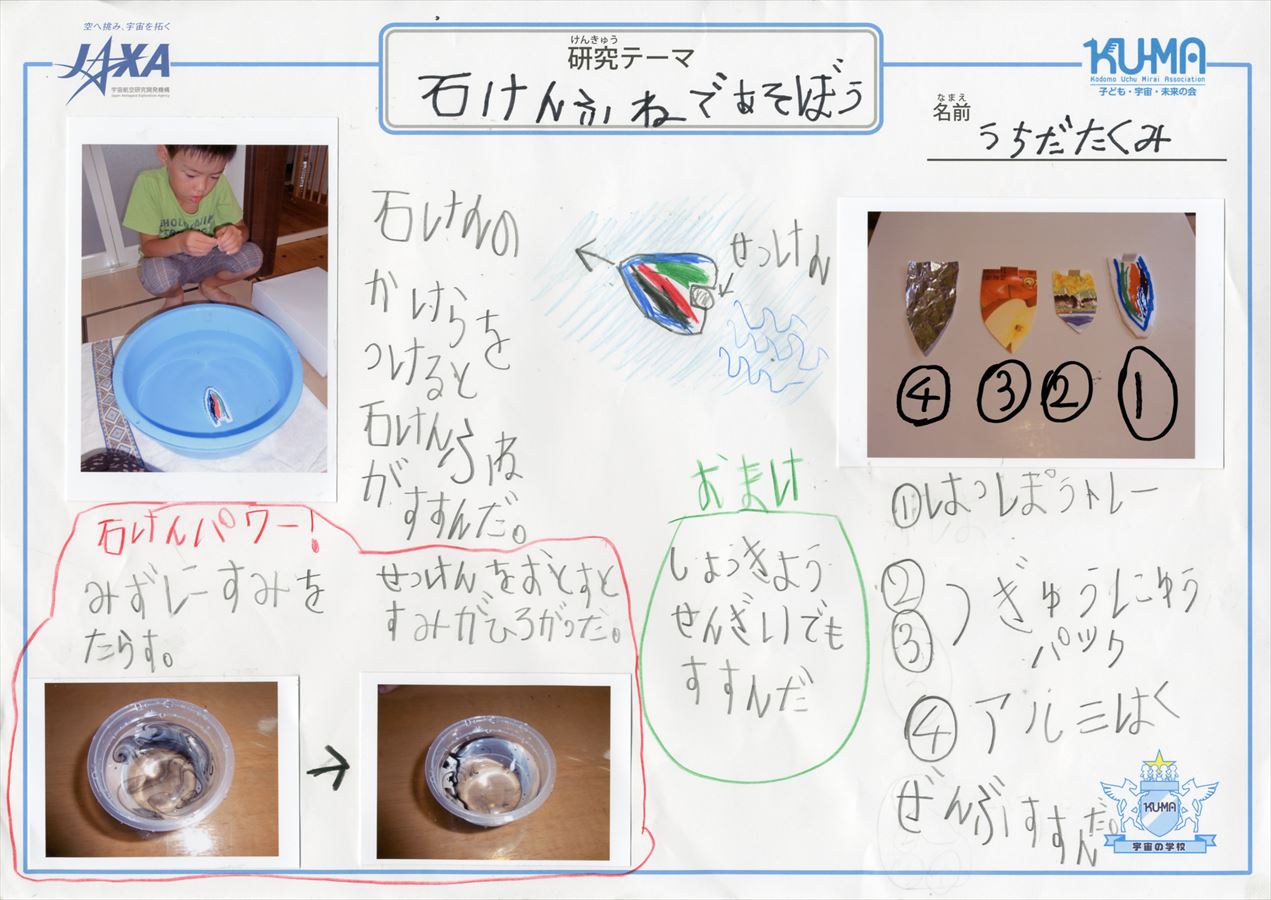 空へ挑み、宇宙を拓く
JAXA
宇宙航空研究開発機構
Japan Aerospace Exploration Agency
けんきゅう
研究テーマ
石けんふねであそぼう
KU-MA
Kodomo Uchu Mirai Association
子ども・宇宙・未来の会
なまえ
名前
うちだたくみ
石けんの
かけらを
つけると
石けんふね
がすすんだ。
せっけん
④ ③ ② ①
①はっぽうトレー
②
③
ぎゅうにゅう
パック
④アルミはく
ぜんぶすすんだ。
おまけ
しょうきよう
せんざいでも
すすんだ
石けんパワー!
みずにーすみを
たらす。
せっけんをおとすと
すみがひろがった。
→
KU-MA
宇宙の学校